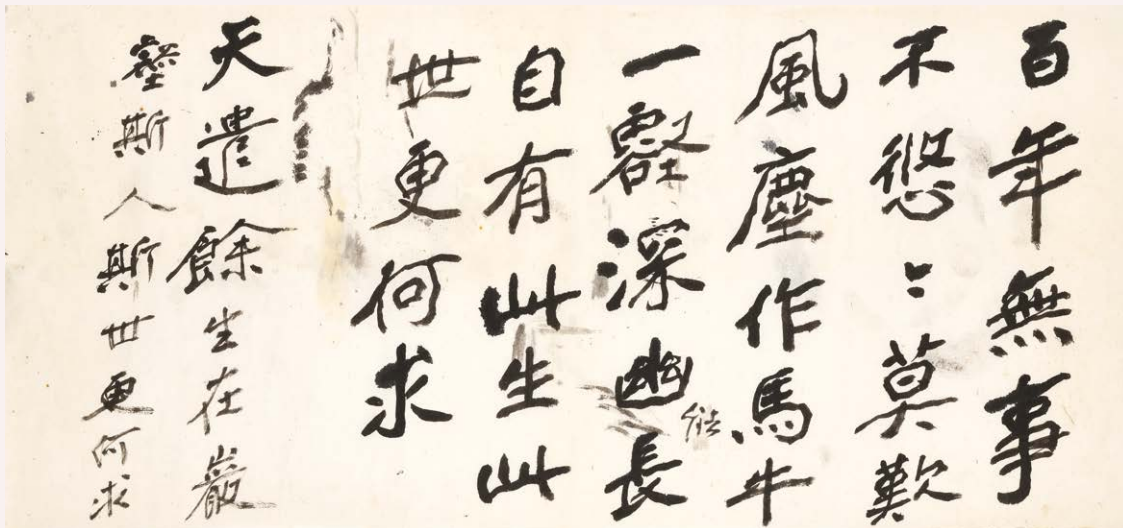 百年無事
不悠〻莫歎
風塵作馬牛
一壑深幽長
自有此生此
世更何求
天遣餘生在巖
壑斯人斯世更何求